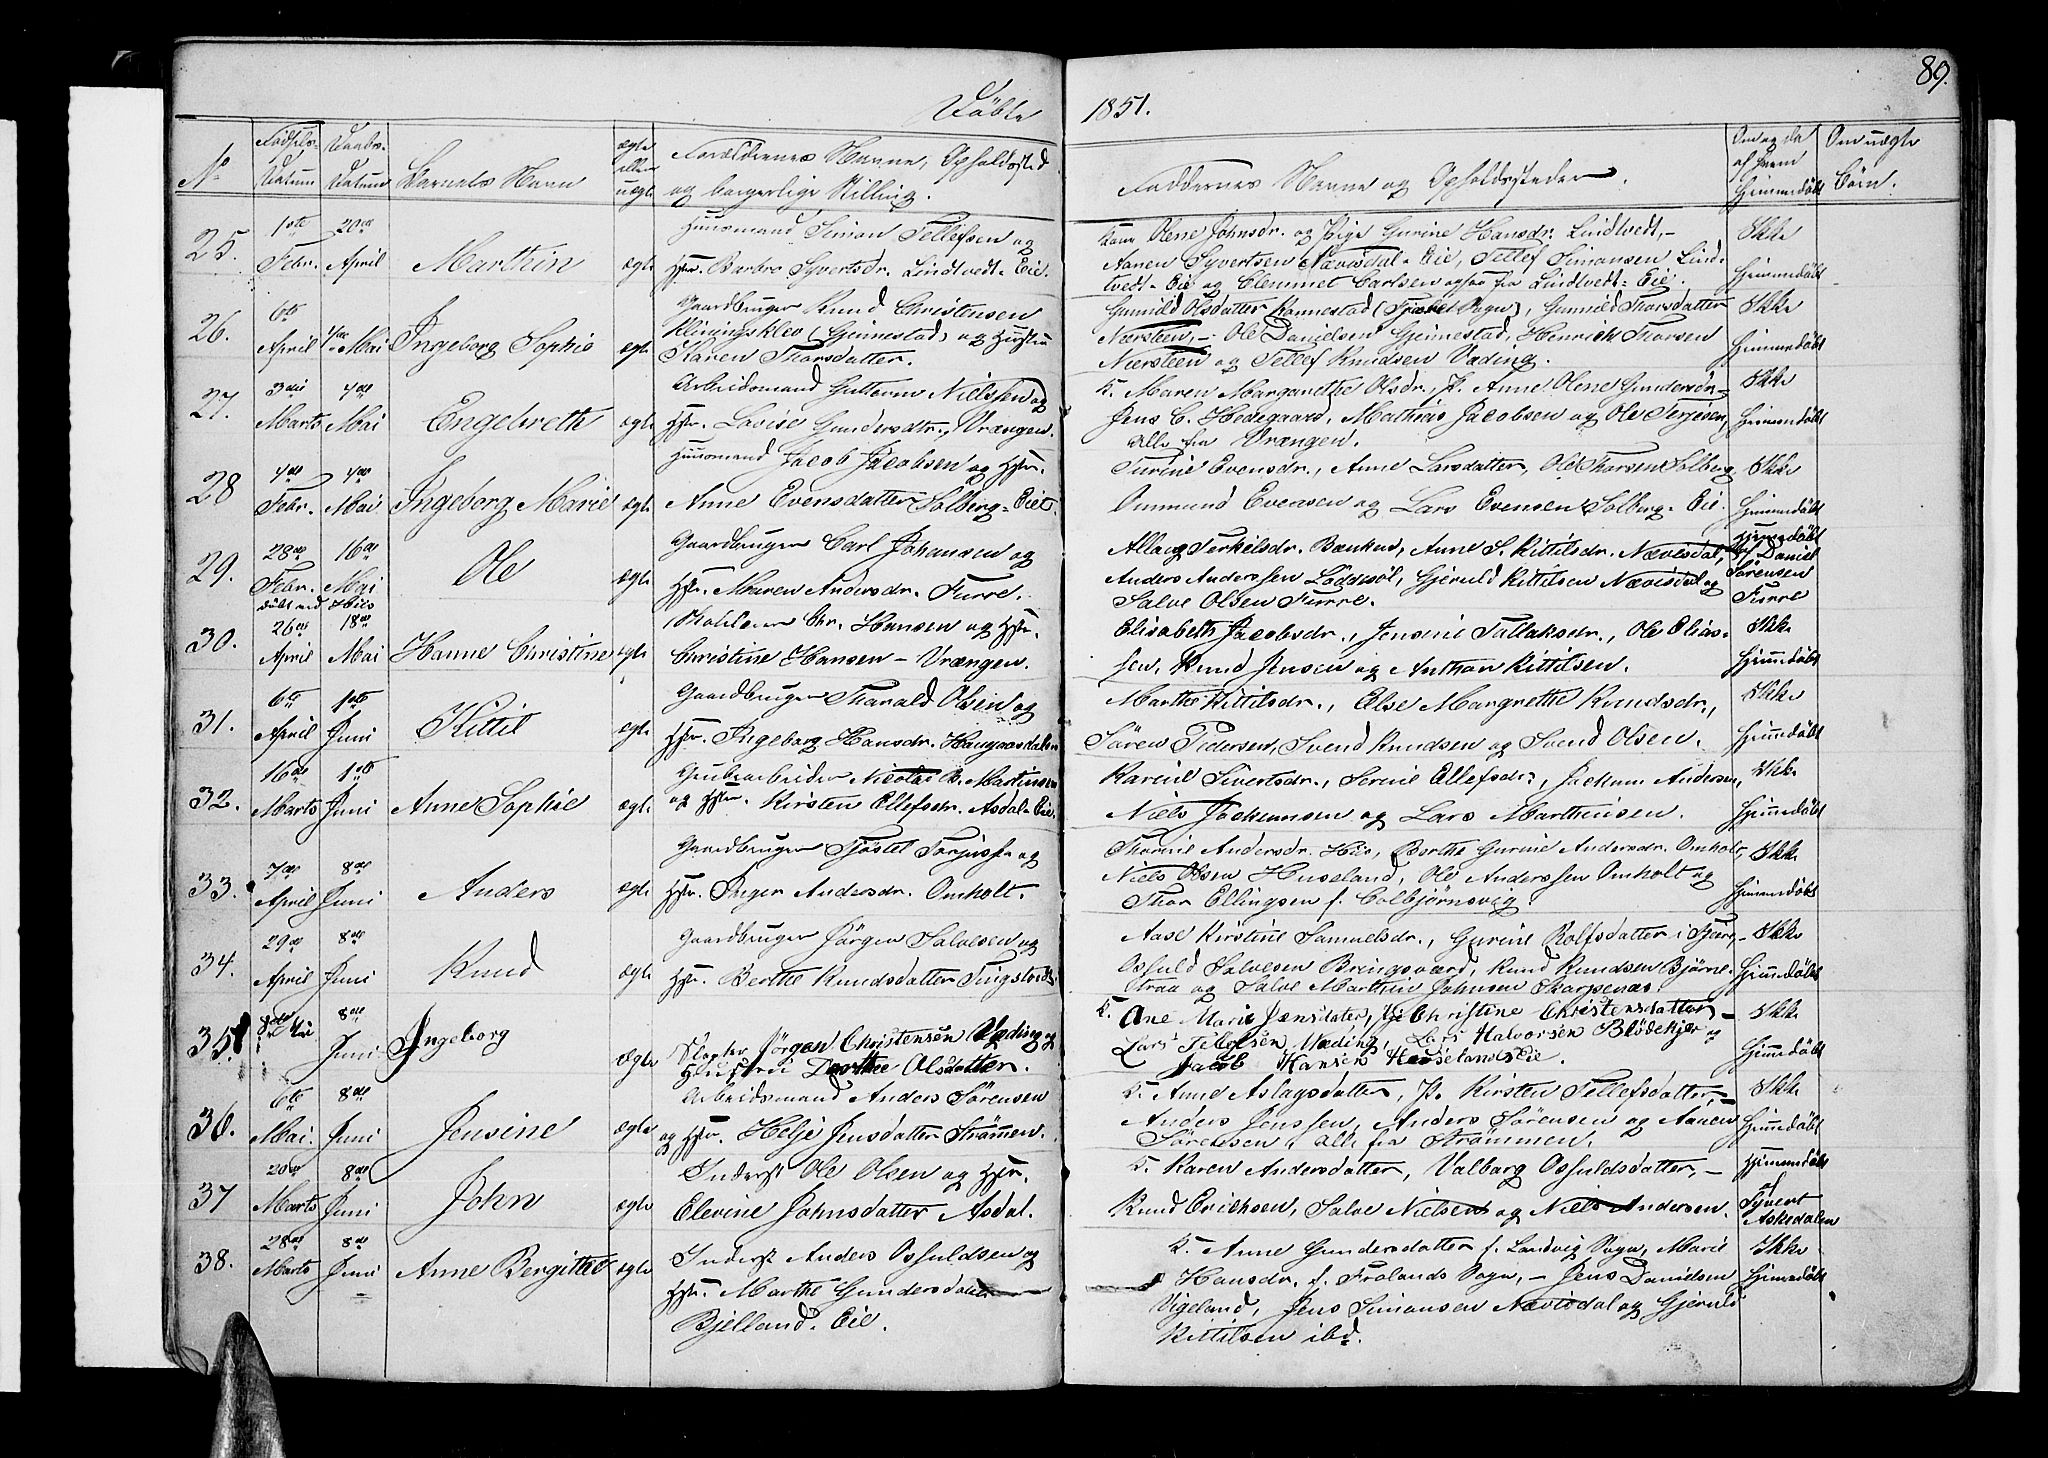 89.
Döbte 1851.
No Födsels Datum Daabs Datum Barnets Navn ægte eller uægte Forældrenes Navne, Opholdssted og borgerlige Stilling. Faddernes Navne og Opholdssteder. Om og da af hvem hjemmedöbt Om uægte Börn.
25. 1ste Febr. 20de April Marthin ægte Huusmand Simon Tellefsen og
Hstr. Barbro Syvertsdr. Lindtvedt-Eie.
Kone Olene Johnsdr. og Pige Gurine Hansdr. Lindtvedt,-
Aanen Syvertsen Nævisdal-Eie, Tellef Simonsen Lind-
tvedt-Eie og Clemmet Carlsen ogsaa fra Lindtvedt-Eie.
Ikke hjemmedöbt
26. 6te April 1ste Mai Ingeborg Sophie ægte Gaardbruger Knud Christensen
Klingisklev (Gjennestad) og Hustru
Karen Thorsdatter.
Gunnild Olsdatter Kannestad (Fjære Sogn), Gunnild Thorsdatter
Nærsteen, - Ole Danielsen Gjennestad, Henrich Thorsen
Nærsteen og Tellef Knudsen Væding.
Ikke hjemmedöbt
27. 3die Marts 4de Mai Engebreth ægte Arbeidsmand Guttorm Nielssen og
Hstr. Lovise Gundersdtr., Vrængen.
K. Maren Margarethe Olsdr., P. Anne Olene Gundersdr.-
Jens C. Hedegaard, Mathias Jacobsen og Ole Terjesen,
alle fra Vrængen.
Ikke hjemmedöbt
28 4de Febr. 4de Mai Ingeborg Marie ægte Huusmand Jacob Jacobsen og Hstr.
Anne Evensdatter Solberg-Eie.
Turine Evensdr., Anne Larsdatter, Ole Thorsen Solberg,
Ommund Evensen og Lars Evensen Solberg-Eie.
Ikke hjemmedöbt
29. 28de Febr. 16de Mai Ole ægte Gaardbruger Carl Johansen og
Hstr. Maren Andersdr. Furre.
Allaug Terkelsdr. Bænkud, Anne S. Kittilsdr. Nævisdal,
Anders Anderssen Löddesöl, Gjeruld Kittilsen Nævisdal og
Salve Olsen Furre.
Hjemmedöbt af Daniel Sörensen Furre
döbt ved Hiis
30. 26de April 18de Mai Hanne Christine ægte Skolelærer Chr. Hansen og Hstr.
Christine Hansen - Vrængen.
Elisabeth Jacobsdr., Jensine Tallaksdr., Ole Elias-
sen, Knud Jensen og Anthon Kittilsen.
Ikke hjemmedöbt
31. 6te April 1ste Juni Kittil ægte Gaardbruger Tharald Olsen og
Hstr. Ingeborg Hansdr. Haugaasdalen
Marthe Kittilsdr., Else Margrethe Knudsdr.,
Sören Pedersen, Svend Knudsen og Svend Olsen.
Ikke hjemmedöbt
32. 16de Marts 1ste Juni Anne Sophie ægte Grubearbeider Nicolai B. Martinsen
og Hstr. Kirsten Ellefsdr. Asdal-Eie.
Karine Sivertsdr., Serine Ellefsdr., Jockum Andersen,
Niels Jockumsen og Lars Marthinsen.
Ikke hjemmedöbt
33. 7de April 8de Juni Anders ægte Gaardbruger Tjöstel Torjusn. og
Hstr. Inger Andersdr. Omholt.
Thorine Andersdr. Hiis, Berthe Gurine Andersdr. Omholt,
Niels Olsen Huseland, Ole Anderssen Omholt og
Thor Ellingsen f. Colbjørnsvig.
Ikke hjemmedöbt
34. 29de April 8de Juni Knud ægte Gaardbruger Jörgen Salvesen og
Hstr. Berthe Knudsdatter Tingstvedt
Aase Kirstine Samuelsdr., Gurine Rolfsdatter i Fjære,-
Osfuld Salvesen Bringsværd, Knud Knudsen Bjørne-
traa og Salve Marthin Johnsen Skarpenæs.
Ikke hjemmedöbt
35. 8de Juni Ingeborg ægte Jörgen Christensen Væding og
Hustrue Dorthe Olsdatter.
K. Ane Marie Jensdater, Christine Christensdatter -
Lars Tellefsen Væding, Lars Halvorsen Blödekjær og
Jacob Hansen Haiselandseie.
Ikke hjemmedöbt
36. 6te Mai. 8de Juni Jensine ægte Arbeidsmand Anders Sörensen
og Hstr. Helje Jensdatter Strömmen.
K. Anne Aslagsdatter, P. Kirsten Tellefsdatter,-
Anders Jenssen, Anders Sörensen og Aanen
Sörensen, alle fra Strömmen.
Ikke hjemmedöbt
37 20de Marts 8de Juni John ægte Inderst Ole Olsen og Hstr.
Elevine Johnsdatter Asdal.
K. Karen Andersdatter, Valborg Osfuldsdatter,-
Knud Erichsen, Salve Nielsen og Niels Andersen.
Hjemmedöbt af Syvert Askedalen
38. 28de Marts 8de Juni Anne Bergitte ægte Inderst Anders Osfuldsen og
Hstr. Marthe Gundersdatter
Bjelland-Eie.
K. Anne Gundersdatter f. Landvig Sogn, Marie
Hansdr. f. Frolands Sogn, - Jens Danielsen
Vigeland, Jens Simonsen Nævisdal og Gjeruld
Kittilsen ibd.
Ikke hjemmedöbt